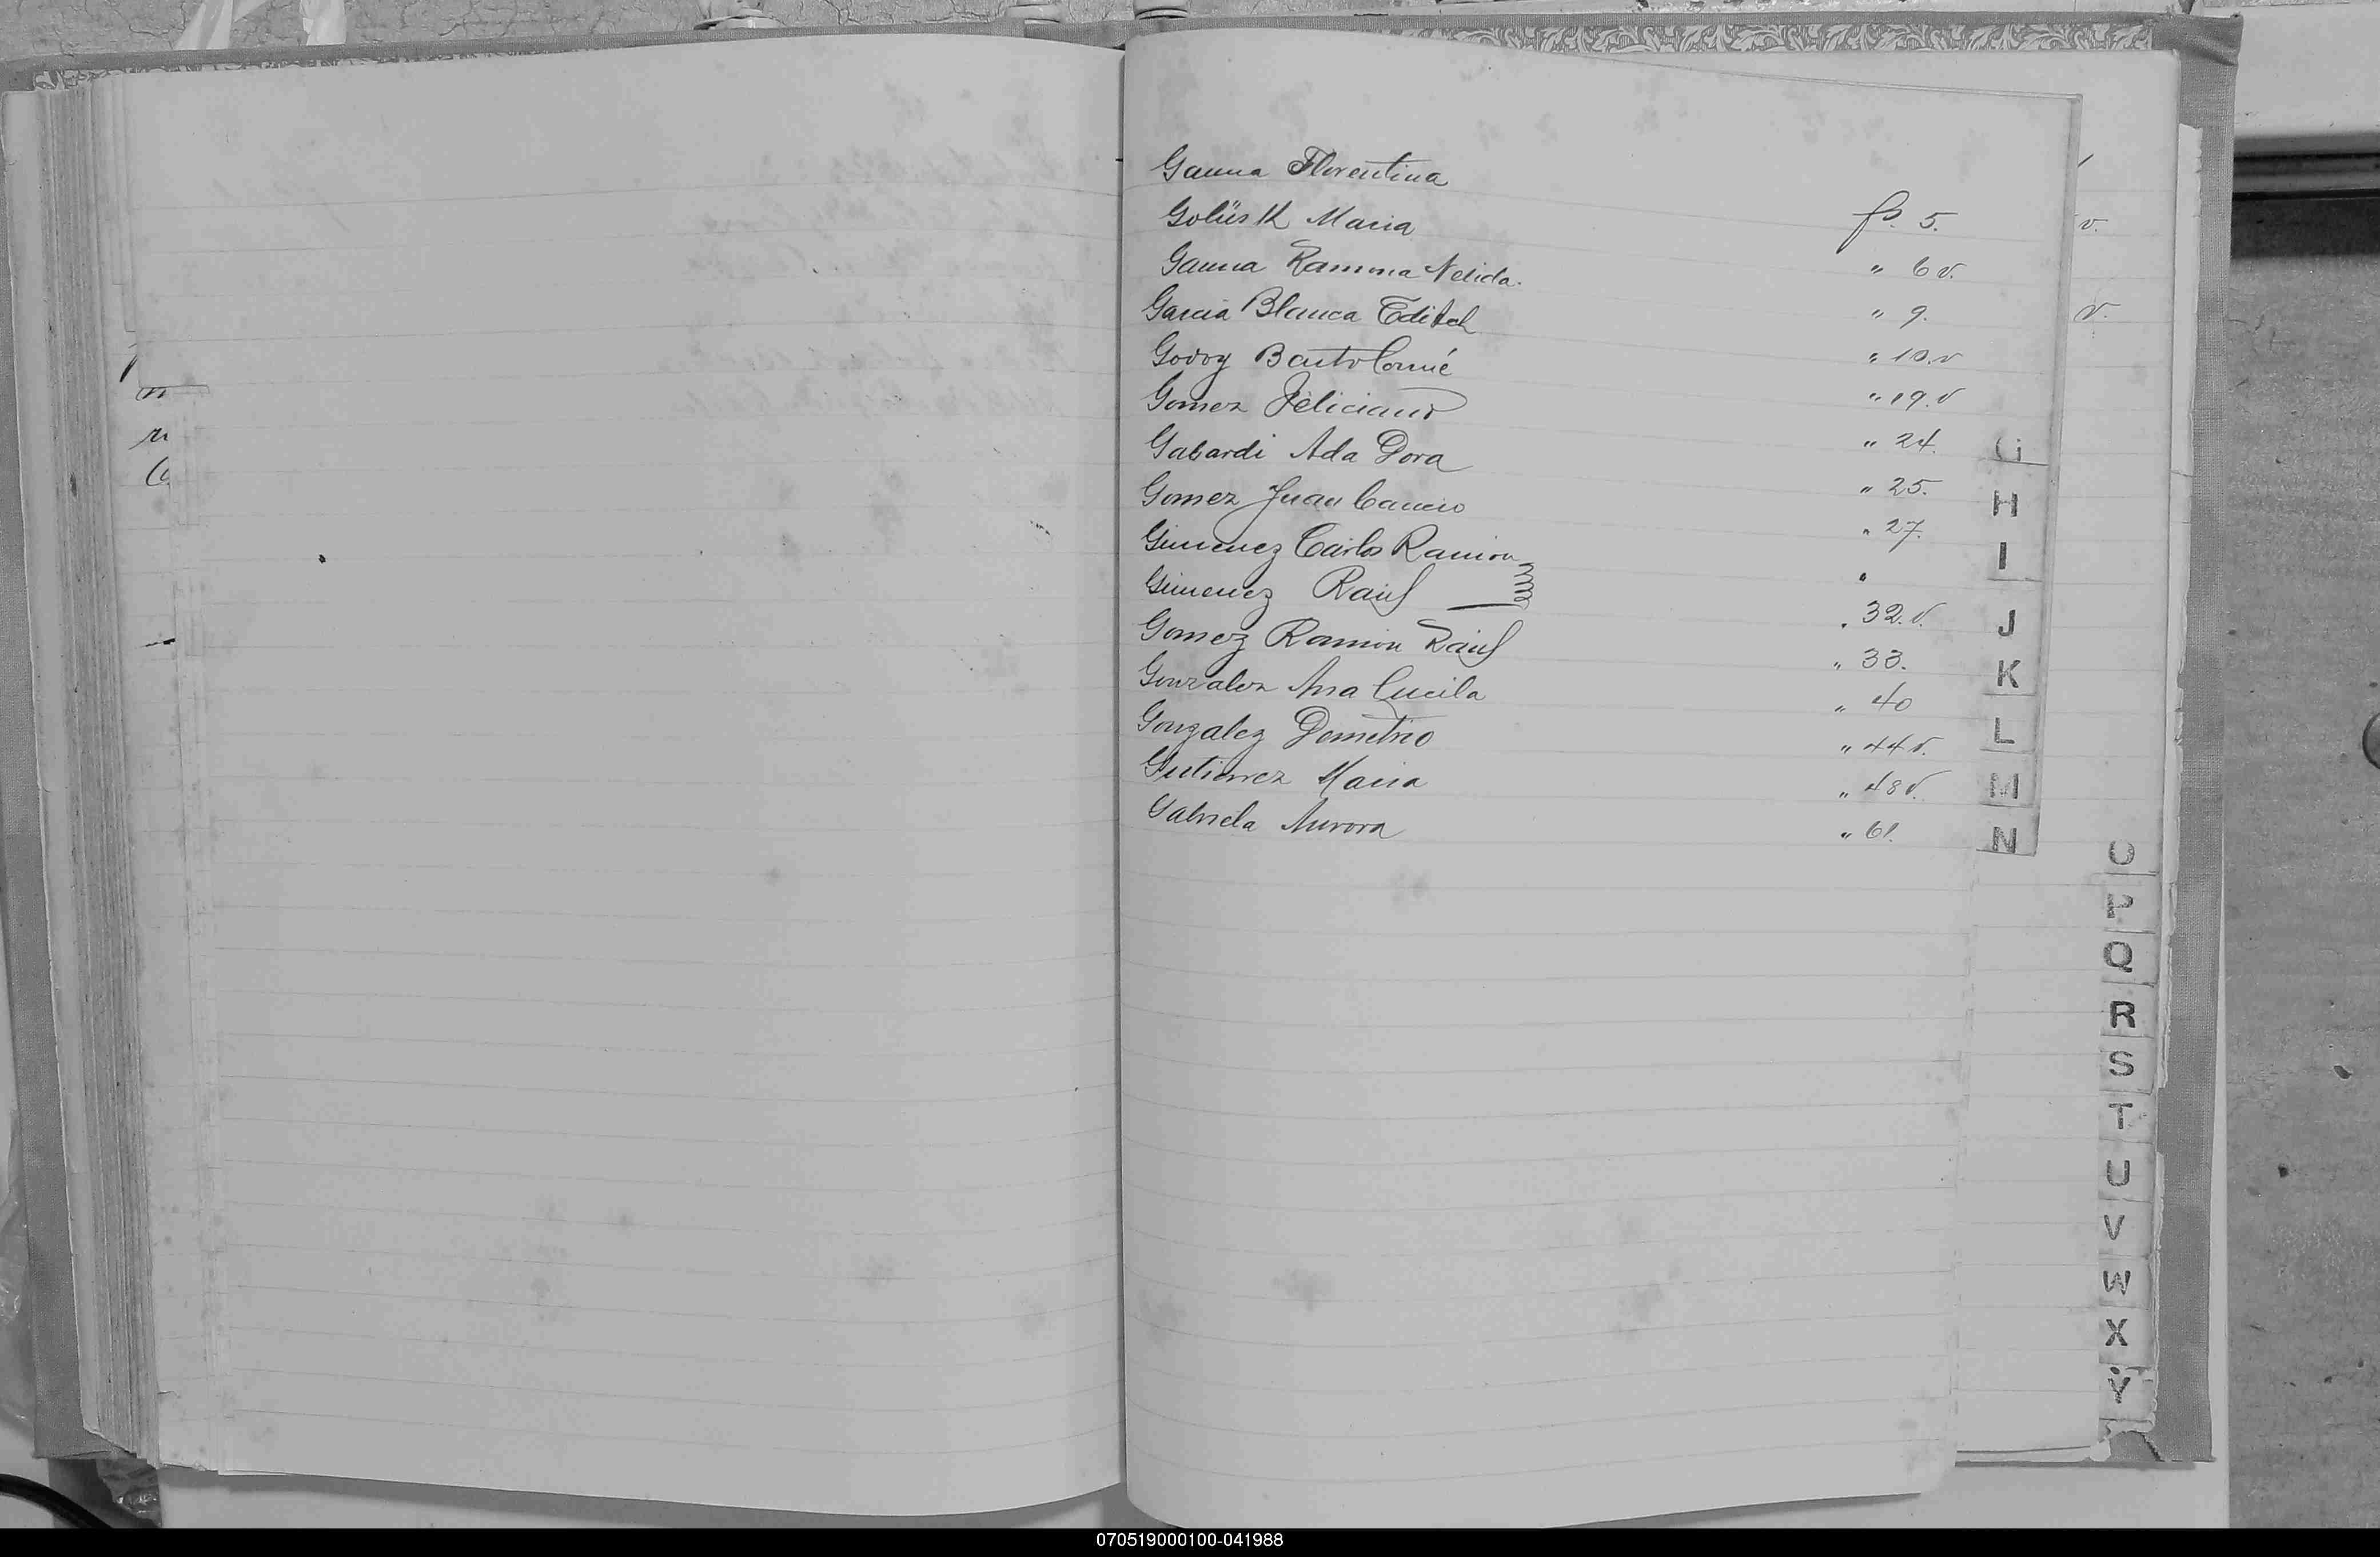 Gauna Florentina fs. 5.
Golüs K Maria " 6 v.
Gauna Ramona Nelida. " 9.
Garcia Blanca Editch " 10.v
Godoy Bartolomé " 19.v
Gomez Feliciano " 24.
Gabardi Ada Dora " 25.
Gomez Juan Cancio " 27.
Gimenez Carlos Ramon
Gimenez Raúl " 32.v.
Gomez Ramon Raúl " 33.
Gonzalez Ana Lucila " 40
Gonzalez Demetrio " 44 v.
Gutierrez Maria " 48 v.
Gabriela Aurora " 61.
v.
v.
G
H
I
J
K
L
M
N
O
P
Q
R
S
T
U
V
W
X
Y
070519000100-041988